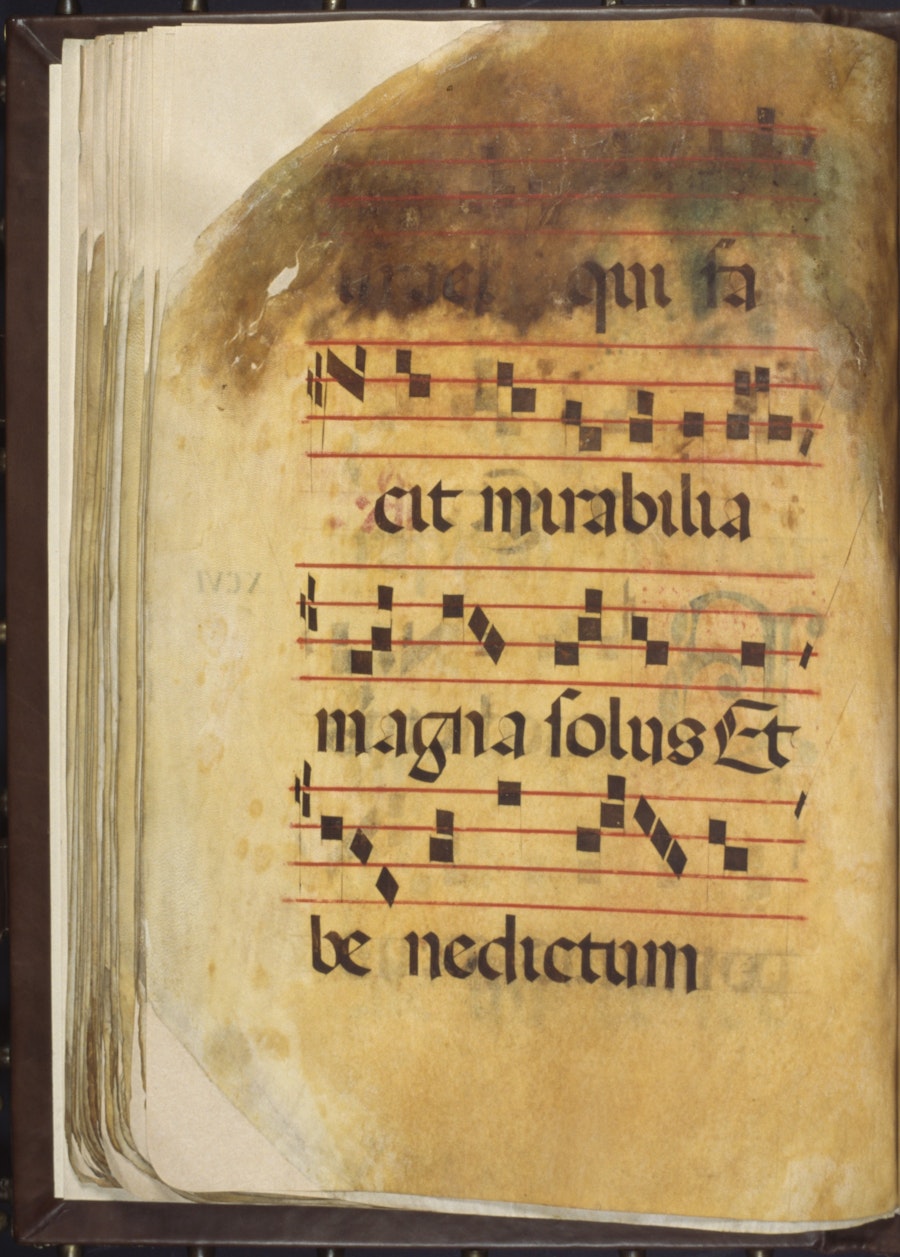 israel qui fa
cit mirabilia
magna solus Et
be nedictum